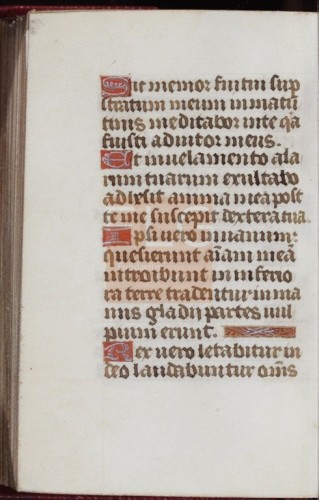 Sic memor fui tui sup
stratum meum in matu
tinis meditabor in te q̃a
fuisti adiutor meus.
Et in velamento ala
rum tuarum exultabo
adhesit anima mea post
te me suscepit dextera tua.
Ipsi vero in vanum
quesierunt aĩam meã
introibunt in inferio
ra terre tradentur in ma
nus gladii partes vul
pium erunt.
Rex vero letabitur in
deo laudabuntur om̃s